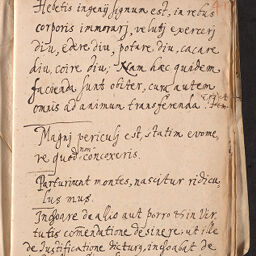 Hebetis ingenij signum est, in rebus
corporis immorarj, velutj exercerj
diu, edere diu, potare diu, cacare
diu, coire diu, Nam hæc quidem
facienda sunt obiter, cura autem
omnis ad animum transferenda.
Magnj periculj est, statim evome,
re quod non concoxeris.
Parturiunt montes, nascitur ridicu,
lus mus.
de alio aut porro in Ver,
tutis comendatione desinere, ut ile
de Iustificatione dicturus, inchoabat de